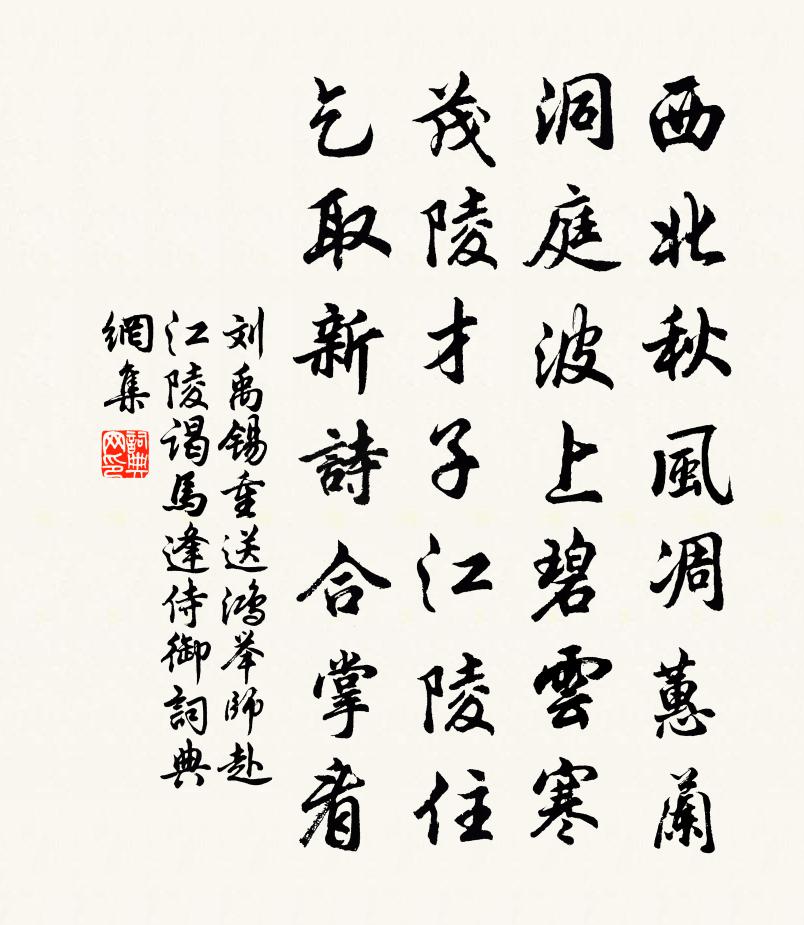 西北秋風凋蕙蘭
洞庭波上碧雲寒
茂陵才子江陵住
乞取新詩合掌看
刘禹锡重送鴻举師赴
江陵谒馬逢侍御詞典
網集
詞典
网印